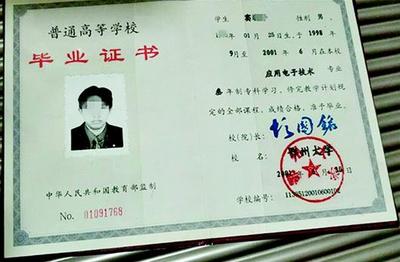 普通高等学校
毕业证书
中华人民共和国教育部监制
No. 01091768
学生 性别 男,
01 月 25 日生于 1998
9月至 2001 年 6 月在本校
应用电子技术 专业
叁 年制专科学习,修完教学计划规
定的全部课程,成绩合格,准予毕业。
校(院)长:
校 名: 州大学
学校编号: